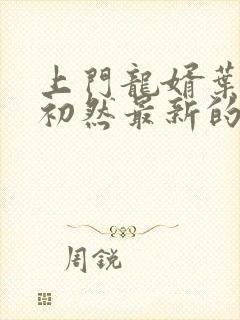 上門龍婿葉
初然最新的
周銳